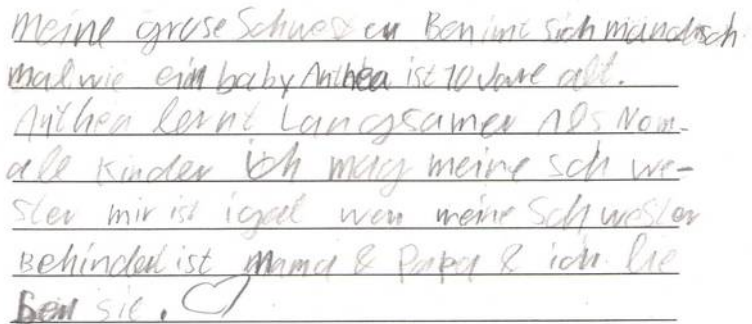 Meine gruse Schwester Benimt sich mandsch
mal wie ein baby Anthea ist 10 Jare alt.
Anthea lernt Langsamer Als Nom-
ale Kinder ich mag meine Schwe-
ster mir ist igal wen meine Schwester
Behindert ist Mama & Papa & ich lie
ben sie.